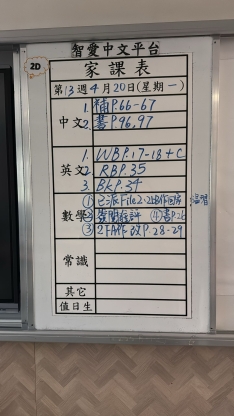 2D
智愛中文平台
家課表
第13週4月20日(星期一)
中文
1. 補P.66-67
2. 書P.96,97
英文
1. WBP.17-18+C
2. RBP.35
3. BKP.34
數學
① 已派File2.2上B作回家 溫習
②
④書P.26
③ 2下A作 改P.28-29
常識
其它
值日生